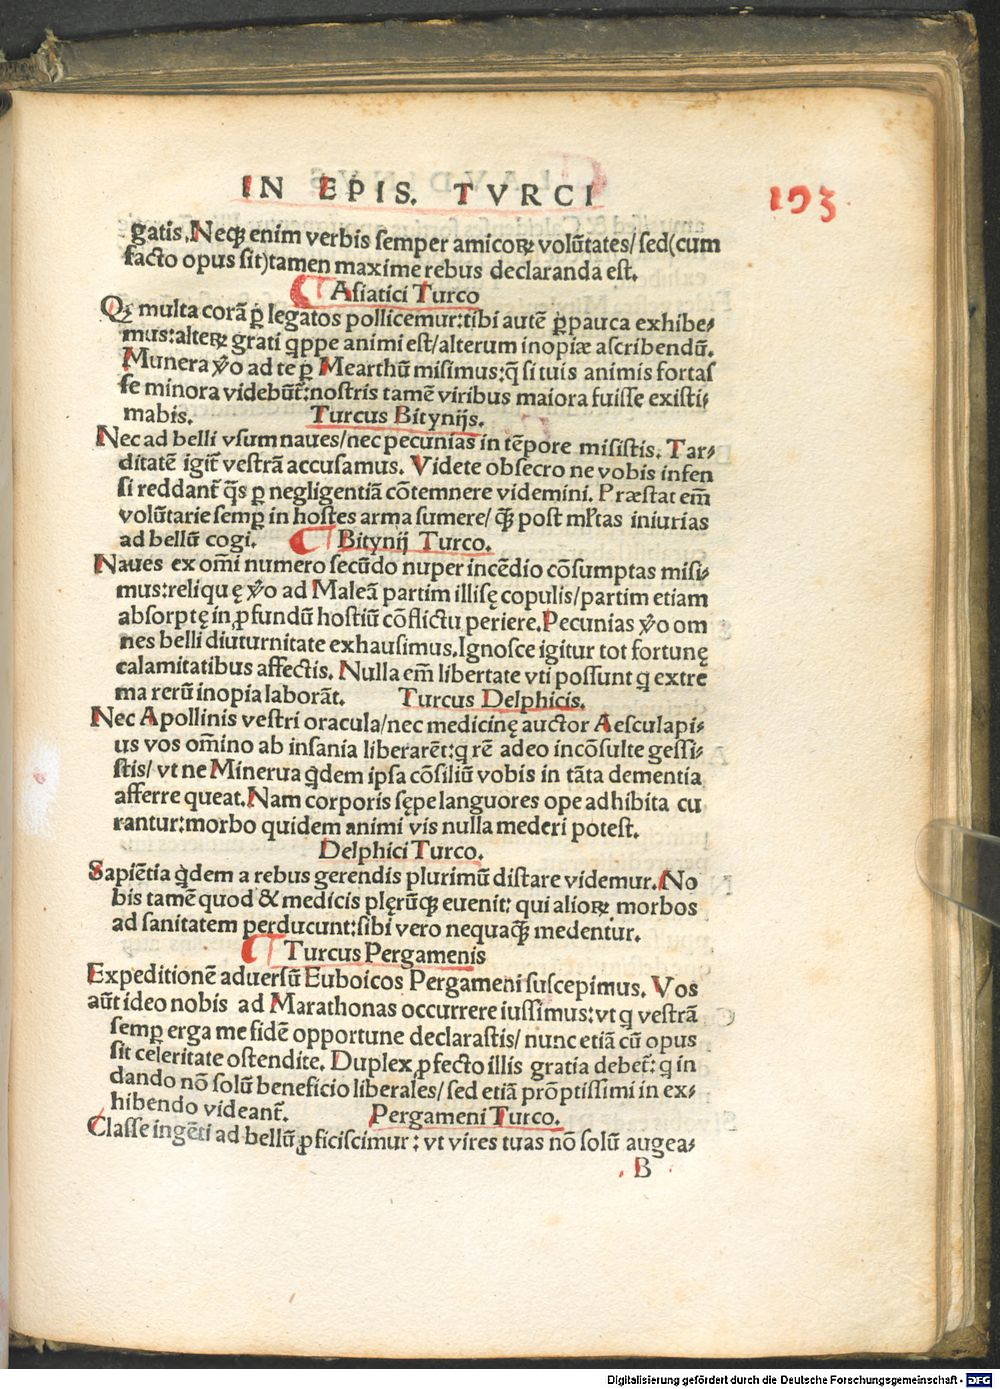 IN EPIS. TVRCI
193
gatis. Neqꝫ enim verbis semper amicoꝝ volūtates/ sed (cum
facto opus sit) tamen maxime rebus declaranda est.
Asiatici Turco
Qꝫ multa corā ꝑ legatos pollicemur: tibi autē ꝑpauca exhibe⸗
mus: alteꝝ grati qͥppe animi est/ alterum inopiæ ascribendū.
Munera ꝟo ad te ꝑ Mearthū misimus: q̄ si tuis animis fortas
se minora videbūt᷑: nostris tamē viribus maiora fuisse existi⸗
mabis. Turcus Bitynijs.
Nec ad belli vsum naues/ nec pecunias in tēpore misistis. Tar⸗
ditatē igit᷑ vestrā accusamus. Videte obsecro ne vobis infen
si reddant᷑ q̄s ꝑ negligentiā cōtemnere videmini. Præstat em̄
volūtarie semꝑ in hostes arma sumere/ qꝫ̄ post ml̓tas iniurias
ad bellū cogi. Bitynij Turco.
Naues ex om̄i numero secūdo nuper incēdio cōsumptas misi⸗
mus: reliquę ꝟo ad Maleā partim illisę copulis/ partim etiam
absorptę in ꝓfundū hostiū cōflictu periere. Pecunias ꝟo om
nes belli diuturnitate exhausimus. Ignosce igitur tot fortunę
calamitatibus affectis. Nulla em̄ libertate vti possunt q extre
ma rerū inopia laborāt. Turcus Delphicis.
Nec Apollinis vestri oracula/ nec medicinę auctor Aesculapi⸗
us vos om̄ino ab insania liberarēt: q rē adeo incōsulte gessi⸗
stis/ vt ne Minerua qͥdem ipsa cōsiliū vobis in tāta dementia
afferre queat. Nam corporis sępe languores ope adhibita cu
rantur: morbo quidem animi vis nulla mederi potest.
Delphici Turco.
Sapiētia qͥdem a rebus gerendis plurimū distare videmur. No
bis tamē quod & medicis plęrūqꝫ euenit: qui alioꝝ morbos
ad sanitatem perducunt: sibi vero nequaqꝫ̄ medentur.
Turcus Pergamenis
Expeditionē aduersū Euboicos Pergameni suscepimus. Vos
aūt ideo nobis ad Marathonas occurrere iussimus: vt q vestrā
semꝑ erga me fidē opportune declarastis/ nunc etiā cū opus
sit celeritate ostendite. Duplex ꝓfecto illis gratia debet᷑: q in
dando nō solū beneficio liberales/ sed etiā prōptissimi in ex⸗
hibendo videant᷑. Pergameni Turco.
Classe ingēti ad bellū ꝓficiscimur: vt vires tuas nō solū augea⸗
B
Digitalisierung gefördert durch die Deutsche Forschungsgemeinschaft - DFG